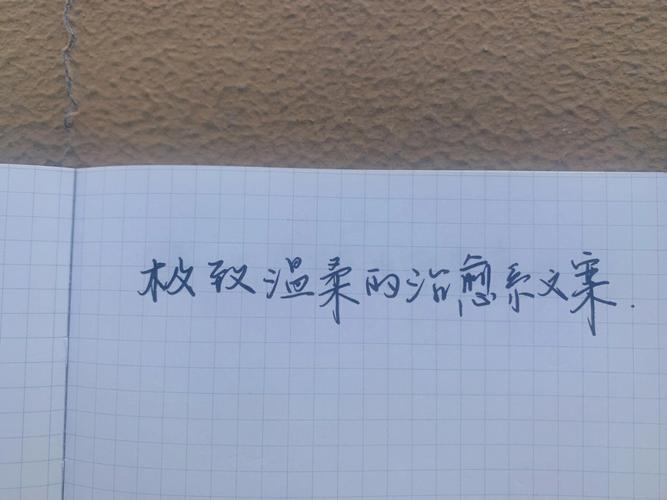 极致温柔的治愈系文案.